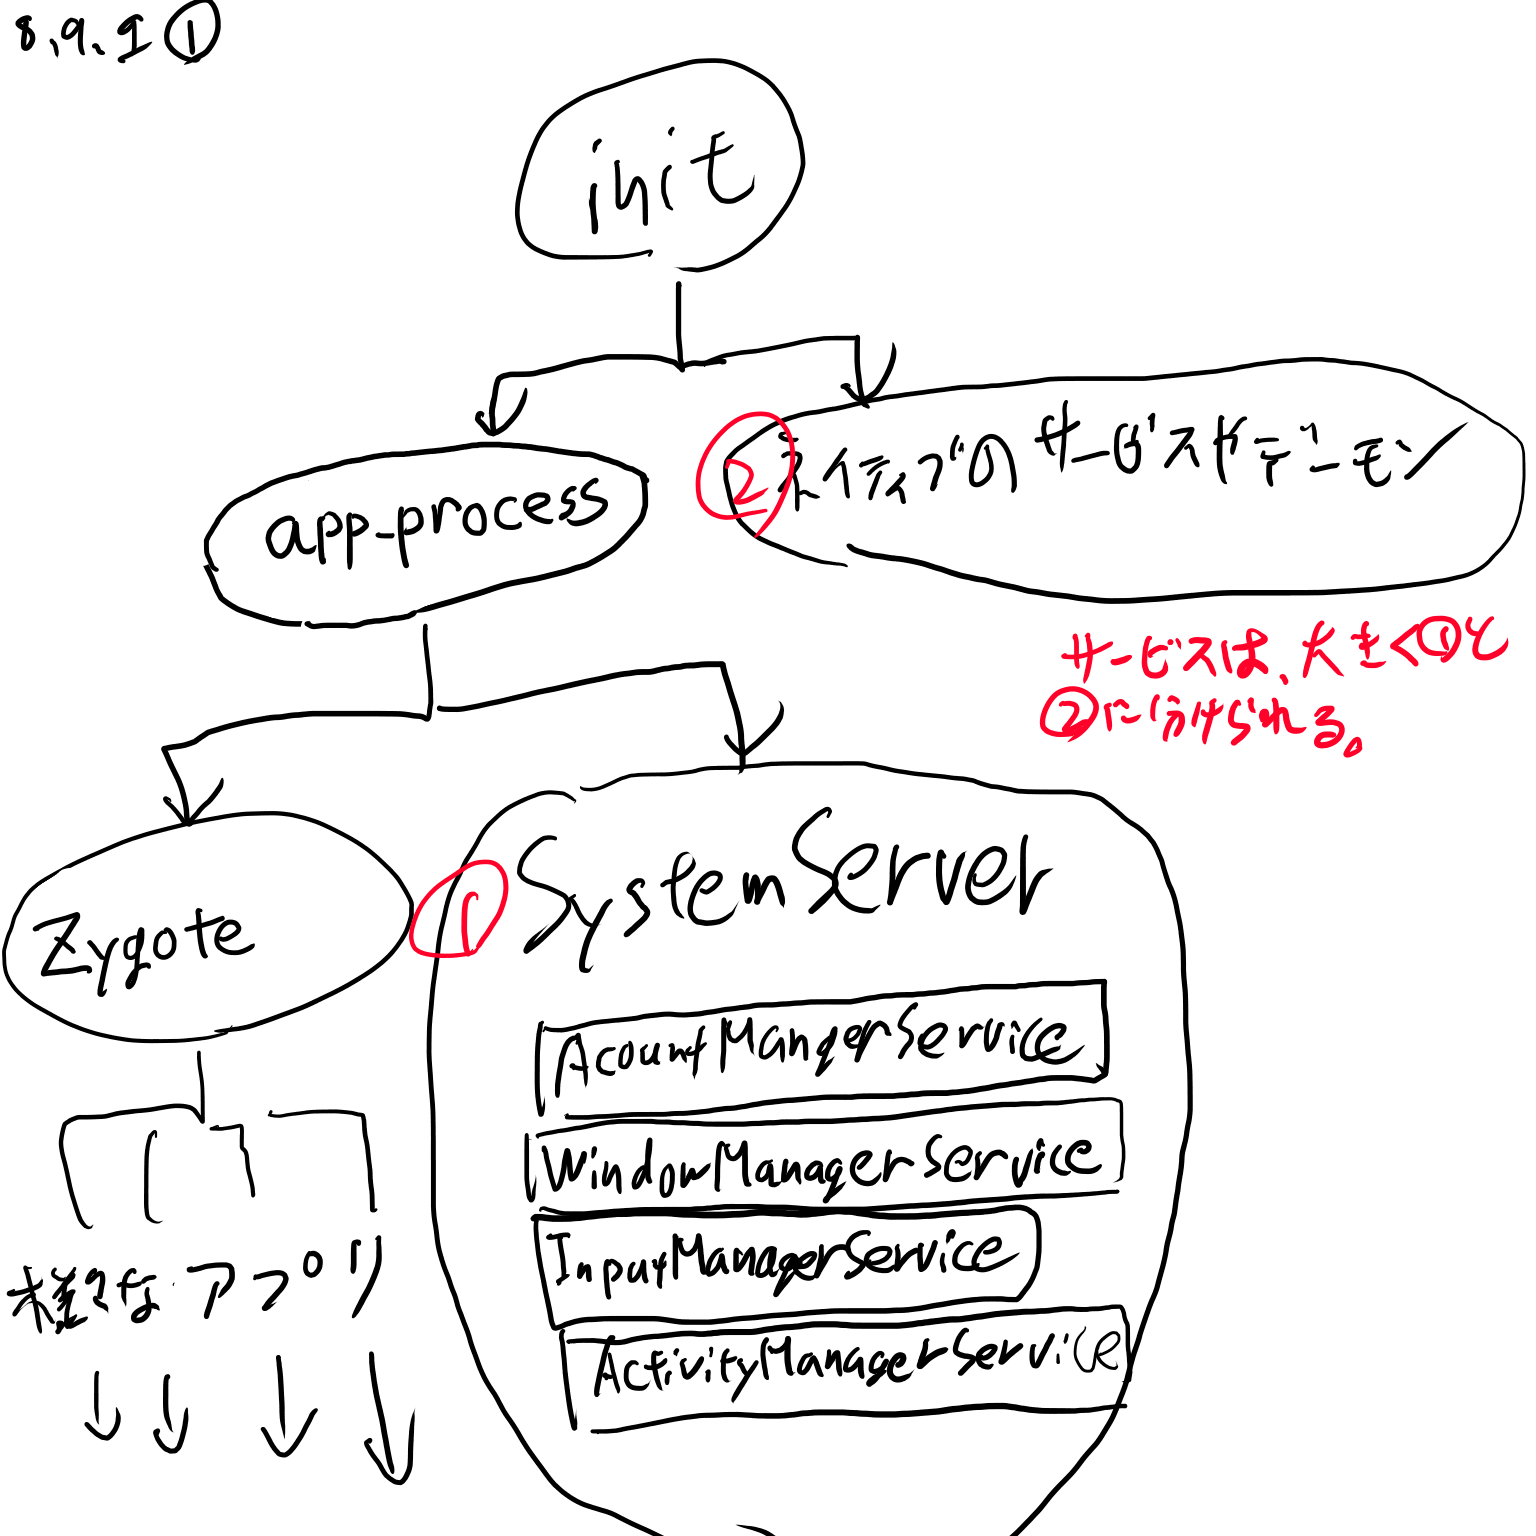 8.9.1 ①
init
app-process
② ネイティブのサービスやデーモン
サービスは、大きく①と
②に分けられる。
Zygote
① SystemServer
AcountMangerService
WindowManagerService
InputManagerService
ActivityManagerService
様々なアプリ